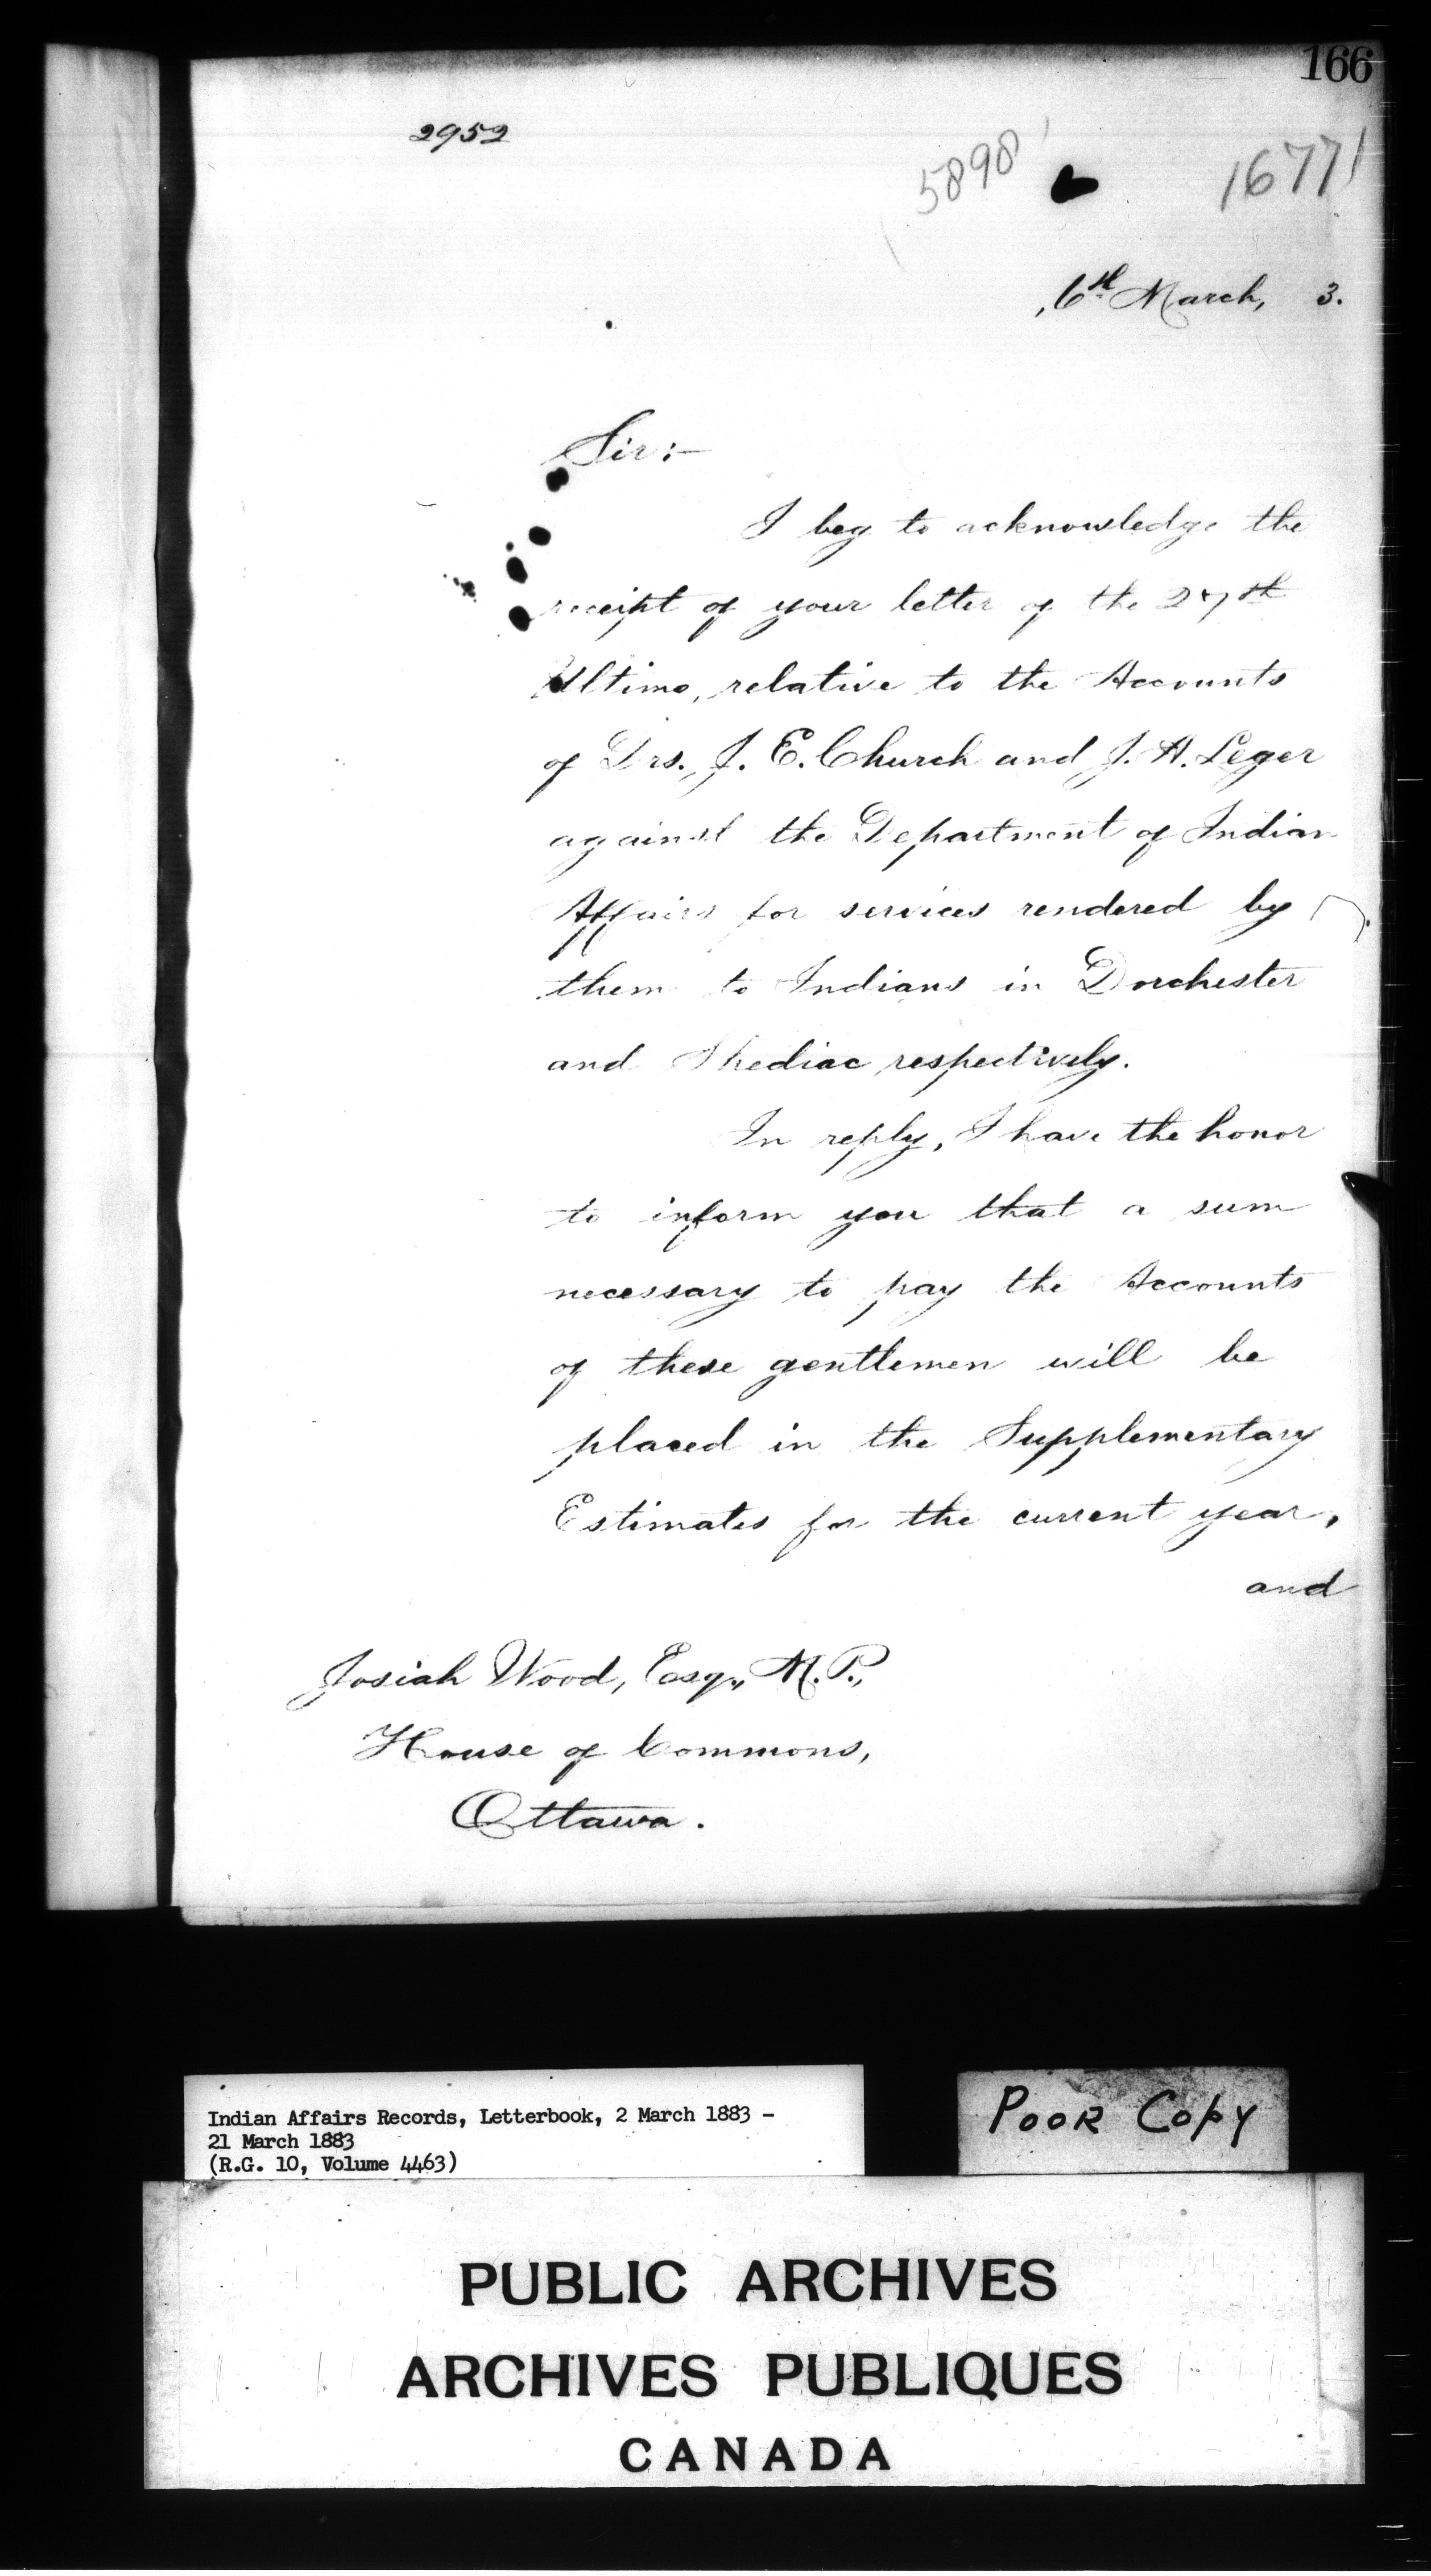 166
2952
5898
16771
6th March, 3.
Sir:-
I beg to acknowledge the
receipt of your letter of the 27th
Ultimo, relative to the Accounts
of Drs. J. E. Church and J. A. Leger
against the Department of Indian
Affairs for services rendered by
them to Indians in Dorchester
and Shediac respectively.
In reply, I have the honor
to inform you that a sum
necessary to pay the Accounts
of these gentlemen will be
placed in the Supplementary
Estimates for the current year,
and
Josiah Wood, Esq., M.P.,
House of Commons,
Ottawa.
Indian Affairs Records, Letterbook, 2 March 1883 -
21 March 1883
(R.G. 10, Volume 4463)
POOR COPY
PUBLIC ARCHIVES
ARCHIVES PUBLIQUES
CANADA